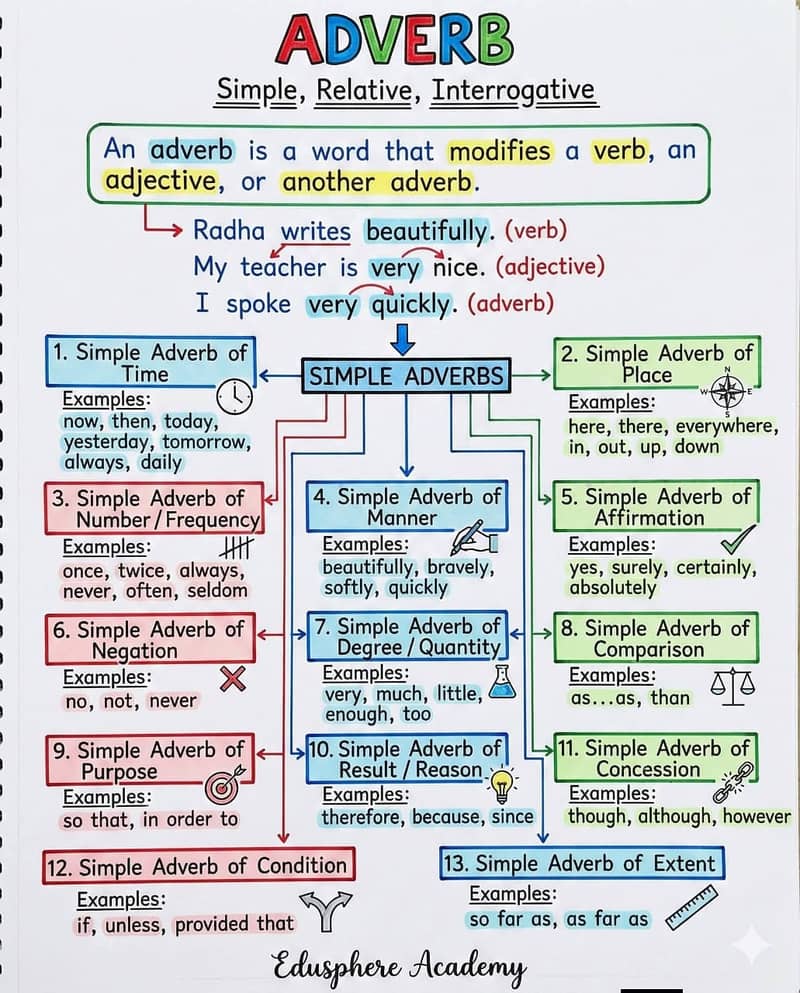 ADVERB
Simple, Relative, Interrogative
An adverb is a word that modifies a verb, an
adjective, or another adverb.
Radha writes beautifully. (verb)
My teacher is very nice. (adjective)
I spoke very quickly. (adverb)
SIMPLE ADVERBS
1. Simple Adverb of
Time
Examples:
now, then, today,
yesterday, tomorrow,
always, daily
2. Simple Adverb of
Place
N
W E
S
Examples:
here, there, everywhere,
in, out, up, down
3. Simple Adverb of
Number/Frequency
Examples:
once, twice, always,
never, often, seldom
4. Simple Adverb of
Manner
Examples:
beautifully, bravely,
softly, quickly
5. Simple Adverb of
Affirmation
Examples:
yes, surely, certainly,
absolutely
6. Simple Adverb of
Negation
Examples:
no, not, never
7. Simple Adverb of
Degree/Quantity
Examples:
very, much, little,
enough, too
8. Simple Adverb of
Comparison
Examples:
as...as, than
9. Simple Adverb of
Purpose
Examples:
so that, in order to
10. Simple Adverb of
Result/Reason
Examples:
therefore, because, since
11. Simple Adverb of
Concession
Examples:
though, although, however
12. Simple Adverb of Condition
Examples:
if, unless, provided that
13. Simple Adverb of Extent
Examples:
so far as, as far as
Edusphere Academy